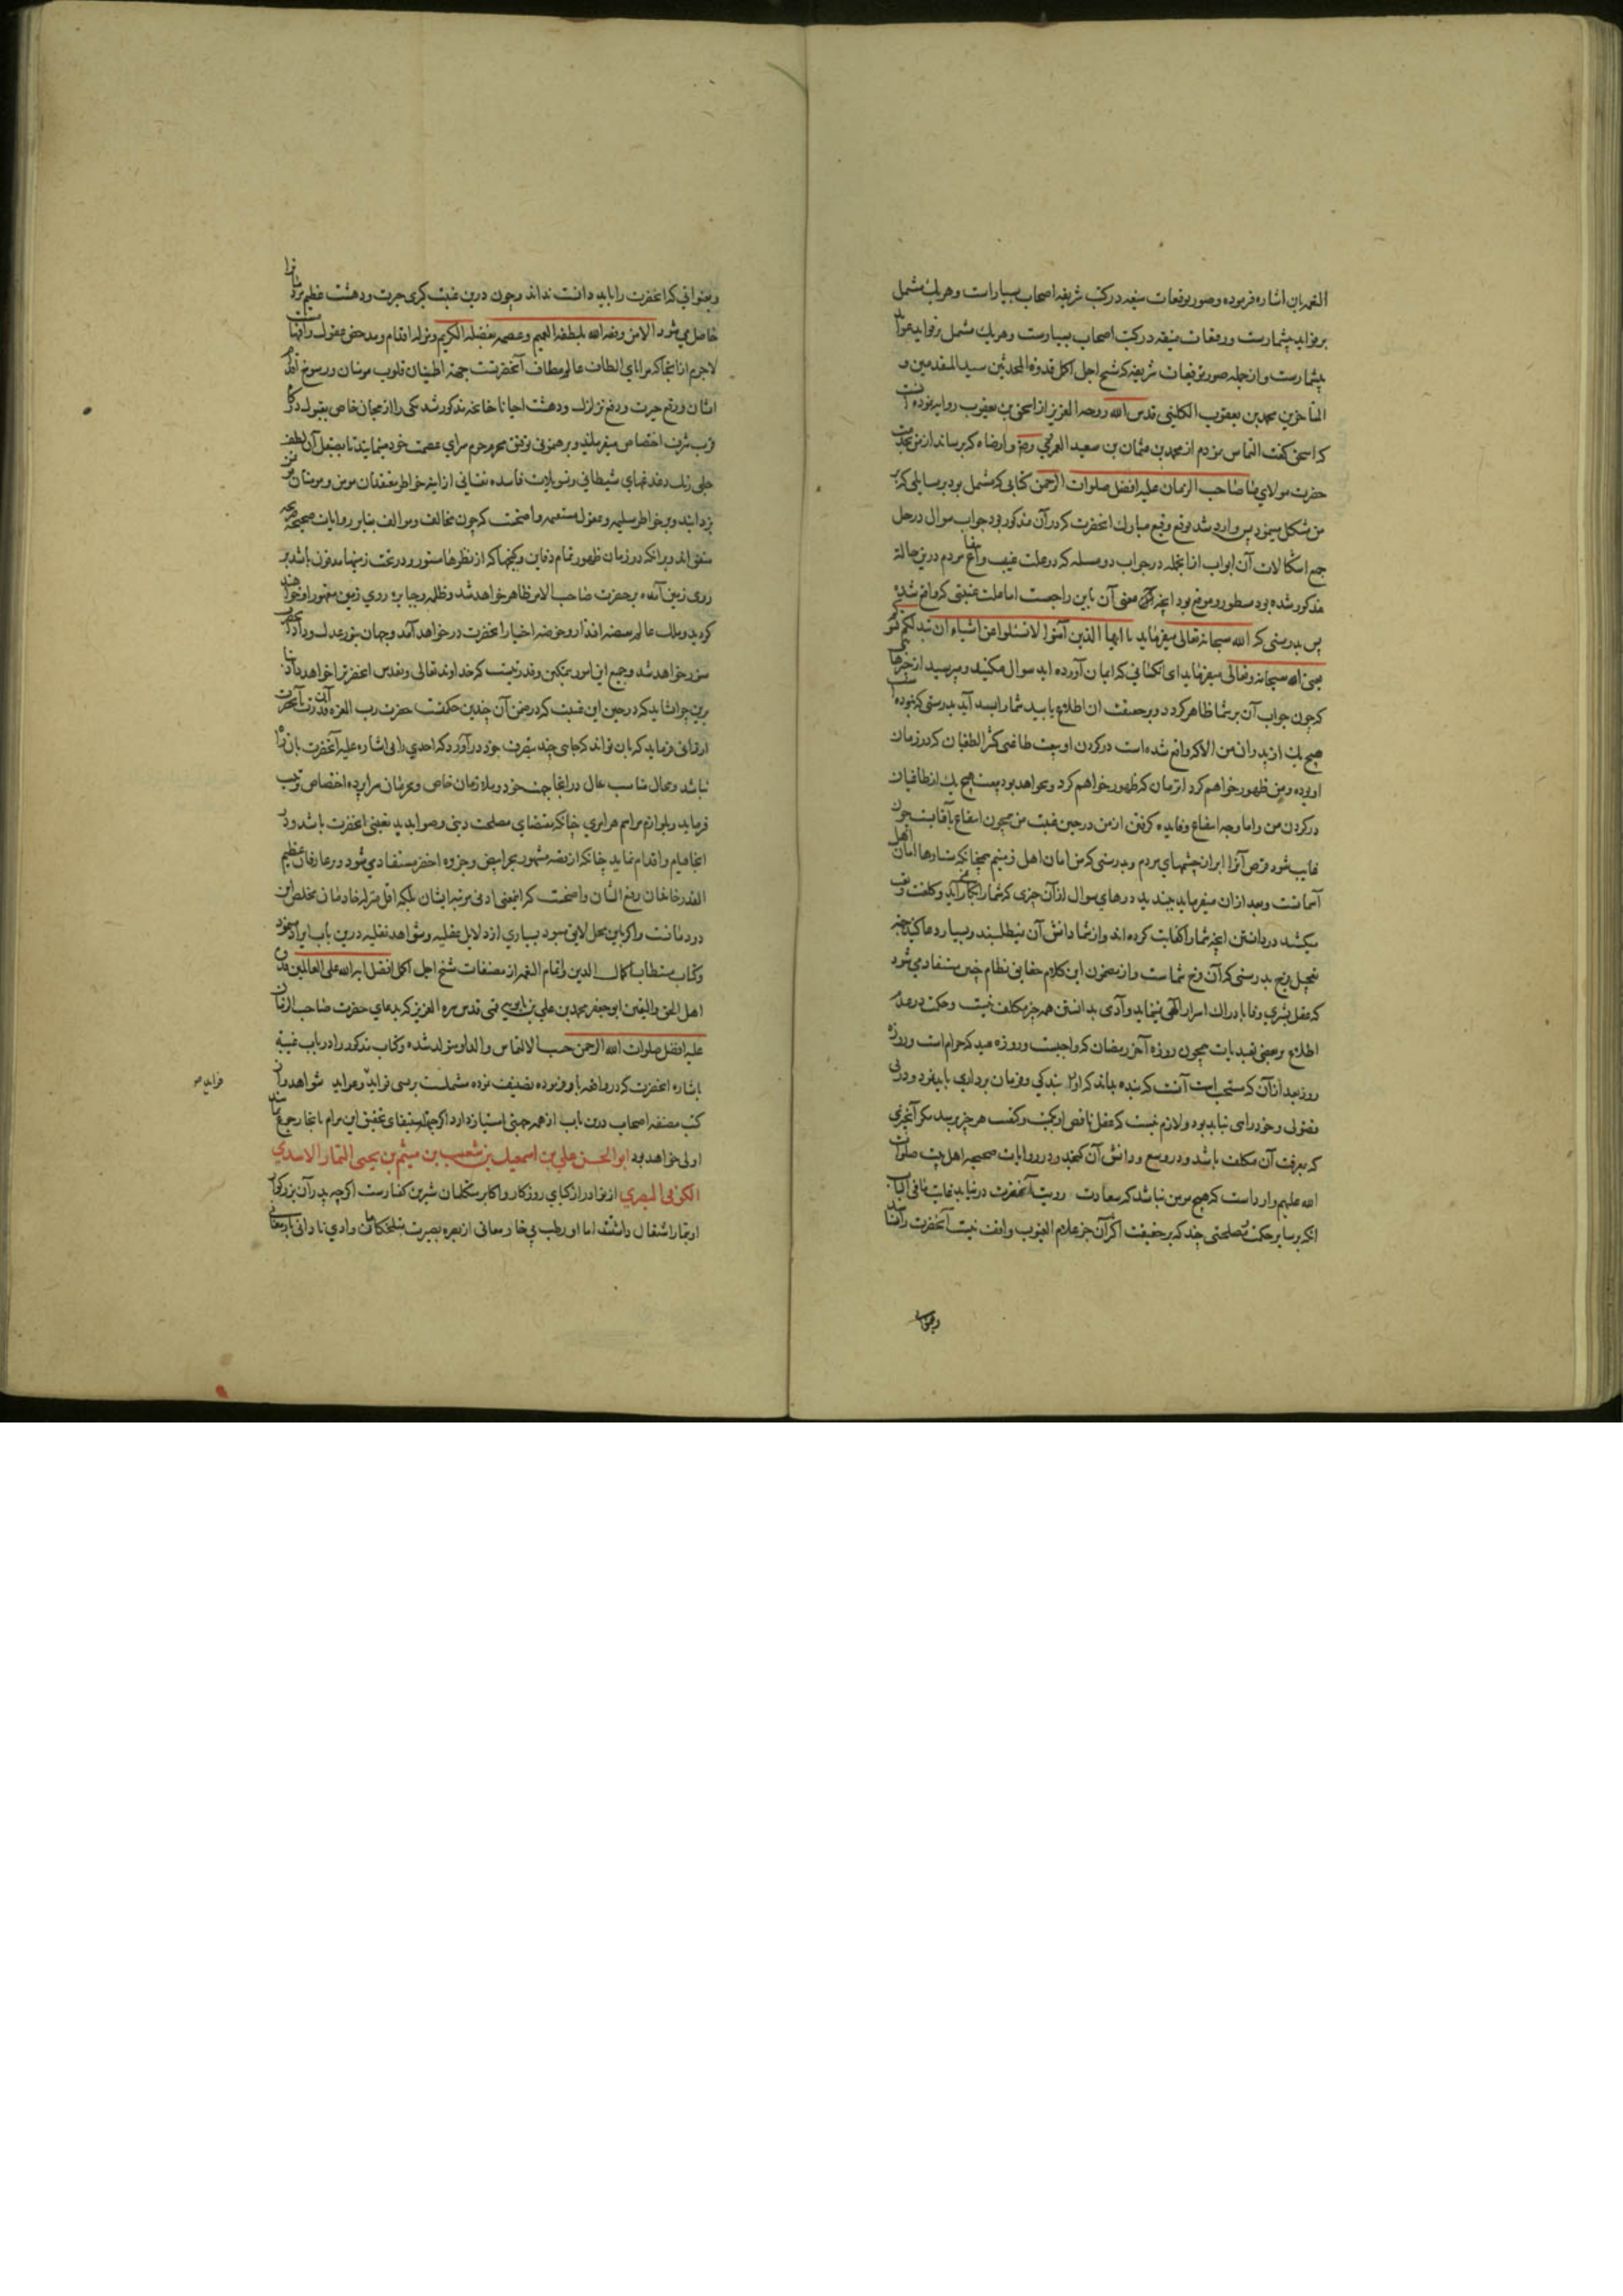 الغمه بان اشاره فرموده وصور توقعات منیعه در کتب شریفه اصحاب بسیار است و هر یک مشتمل
بر فواید بیشمارست و رقعات منیفه در کتب اصحاب بسیارست و هر یک مشتمل بر فواید
بیشمارست و از جمله صور توقیعات شریفه که شیخ اجل اکمل قدوة المحدثین سید المتقدمین و
المتاخرین محمد بن یعقوب الکلینی قدس الله روحه العزیز از اسحق بن یعقوب روایه نموده
که اسحق گفت التماس نمودم از محمد بن عثمان بن سعید العمری رضی و ارضاه که برساند از من بخدمت
حضرت مولای ما صاحب الزمان علیه افضل صلوات الرحمن کتابی که مشتمل بود بر مسایلی که بر
من مشکل مینمود پس وارد شد توقیع رفیع مبارک انحضرت که در آن مذکور بود جواب سوال در حل
جمیع اشکالات آن ابواب از انجمله در جواب دو مسله که در علت غیبت و انتفاع مردم درین حالة
مذکور شده بود مسطور و مرقوم بود انچه معنی آن باین راجعست اما علت غیبتی که واقع شده
پس بدرستی که الله سبحانه تعالی میفرماید یا ایها الذین آمنوا لا تسئلوا عن اشیاء ان تبد لکم تسؤکم
یعنی الله سبحانه و تعالی میفرماید ای آنکسانی که ایمان آورده اید سوال مکنید و مپرسید از چیزها
که چون جواب آن بر شما ظاهر گردد و بر حقیقت ان اطلاع یابید شما را بد آید بدرستی که نبوده است
هیچ یک از پدران من الا که واقع شده است در گردن او بیعت طاغی که از طغیان که در زمان
او بوده و من ظهور خواهم کرد در زمان که ظهور خواهم کرد و نخواهد بود بیعت هیچ یک از طاغیان
در گردن من و اما وجه انتفاع و فایده گرفتن از من در حین غیبت من همچون انتفاع بآفتابست چون
غایب شود قرص آنرا ابر از چشمهای مردم و بدرستی که من امان اهل زمینم همچنانکه ستارها امان اهل
آسمانست و بعد از ان میفرماید ببندید درهای سوال از آن چیزی که شما را بکار نمی آید و کلفت و تعب
میکشد در دانستن انچه شما را کفایت کرده اند و از شما دانش آن نمیطلبند و بسیار دعا کنید بجهة
تعجیل فرج بدرستی که آن فرج شماست و از مضمون این کلام حقایق نظام چنین مستفاد میشود
که عقل بشری وفا بادراک اسرار الهی نمینماید و آدمی بدانستن همه چیز مکلف نیست و حکمت در عدم
اطلاع بر بعضی تعبدیات همچون روزه آخر رمضان که واجبست و روزه عید که حرام است و روزه
روز بعد از آن که مستحب است آنست که بنده بداند که او را بندگی و فرمان برداری باید نمود و در پی
فضولی و خودرایی نباید بود و لازم نیست که عقل ناقص او بکیف و کیفیت هر چیز برسد مگر آنچیزی
که بمعرفت آن مکلف باشد و در وسع و دانش آن گنجد و در روایات صحیحه اهل بیت صلوات
الله علیهم وارد است که هیچ مومن نباشد که سعادت رویت آنحضرت در نیابد غایت ما فی الباب
انکه بر سایر حکمت و مصلحتی چند که بر حقیقت اکثر آن جز علام الغیوب واقف نیست آنحضرت را
وبعنوانی
وبعنوانی که انحضرت را باید دانست نداند و چون درین غیبت کبری حیرت و دهشت عظیم
حاصل میشود الا من وفقه الله بلطفه العمیم و عصمه بفضله الکریم و تزلزله اقدام و مدحض عقول و
لاجرم از انجا که مزایای الطاف عالم مطاف آنحضرتست جهة اطمینان قلوب مومنان و رسوخ اقدام
ایشان و رفع حیرت و دفع تزلزل و دهشت احیانا چنانچه مذکور شد یکی را از محبان خاص بقبول درگاه
قرب شرف اختصاص میفرمایند و برهنمونی توفیق محرم حرم سرای عصمت خود مینمایند تا بصیقل آن لطف
جلی زنک دغدغهای شیطانی و تسویلات فاسده نفسانی از اینه خواطر معتقدان موقن و مومنان
بزدایند و بر خواطر سلیمه و عقول مستقیمه واضحست که چون مخالف و موالف بنابر روایات صحیحه
متفق اند بر انکه در زمان ظهور تمام دفاین و گنجها که از نظرها مستور و در تحت زمینها مدفون باشد بر
روی زمین آمده بر حضرت صاحب الامر ظاهر خواهد شد و ظلمه و جبابره روی زمین مقهور او خواهند
گردید و ملک عالم بقبضه اقتدار و حوضه اختیار انحضرت در خواهد آمد و جهان بنور عدل و داد
منور خواهد شد و جمیع این امور بتمکین و قدرتیست که خداوند تعالی و تقدس انحضرترا خواهد داد
برین چرا نشاید که در حین این غیبت که در ضمن آن چندین حکمتست حضرت رب العزه آن قدرت بآنحضرت
ارزانی فرماید که بان تواند که جای چند بتصرف خود در آورد که احدی را بی اشاره علیه آنحضرت بان راه
نباشد و بحال مناسب حال در انجا جهت خود و ملازمان خاص و محرمان سراپرده اختصاص ترتیب
فرماید و بلوازم مراسم هر امری چنانکه مقتضای مصلحت دینی و صوابدید بعضی انحضرت باشد در
انجا قیام و اقدام نماید چنانکه از قصه مشهور بحر ابیض و جزیره اخضر مستفاد میشود و بر عارفان عظیم
القدر خاندان رفیع الشان واضحست که اینمعنی ادنی مرتبه ایشان بلکه اقل منزله خادمان مخلص این
دردمانست و اگر باین محل لایق میبود بسیاری از دلایل عقلیه و شواهد نقلیه درین باب ایراد مینمود
و کتاب مستطاب اکمال الدین و اتمام النعمه از مصنفات شیخ اجل اکمل افضل ایة الله علی العالمین قدوة
اهل الحق والیقین ابو جعفر محمد بن علی بن بابویه قمی قدس سره العزیز که بدعای حضرت صاحب الزمان
علیه افضل صلوات الله الرحمن حسب الالتماس والد او متولد شده و کتاب مذکور را در باب غیبة
باشاره انحضرت که در واقعه باو فرموده تصنیف نموده مشتملست بر بسی فواید و عواید شواهد و از
فراید صح
کتب مصنفه اصحاب درین باب از همه جهتی امتیاز دارد اگر جهة استیفای تحقیق این مرام بانجا رجوع نمایند
اولی خواهد بود ابو الحسن علی بن اسمعیل بن شعیب بن میثم بن یحیی التمار الاسدی
الکوفی البصری از نوادر ازکیای روزگار و اکابر متکلمان شیرین گفتارست اگرچه پدر آن بزرگوار
او تمار اشتغال داشت اما او رطب بی خار معانی از بصره بصیرت بتلخکامان وادی نادانی